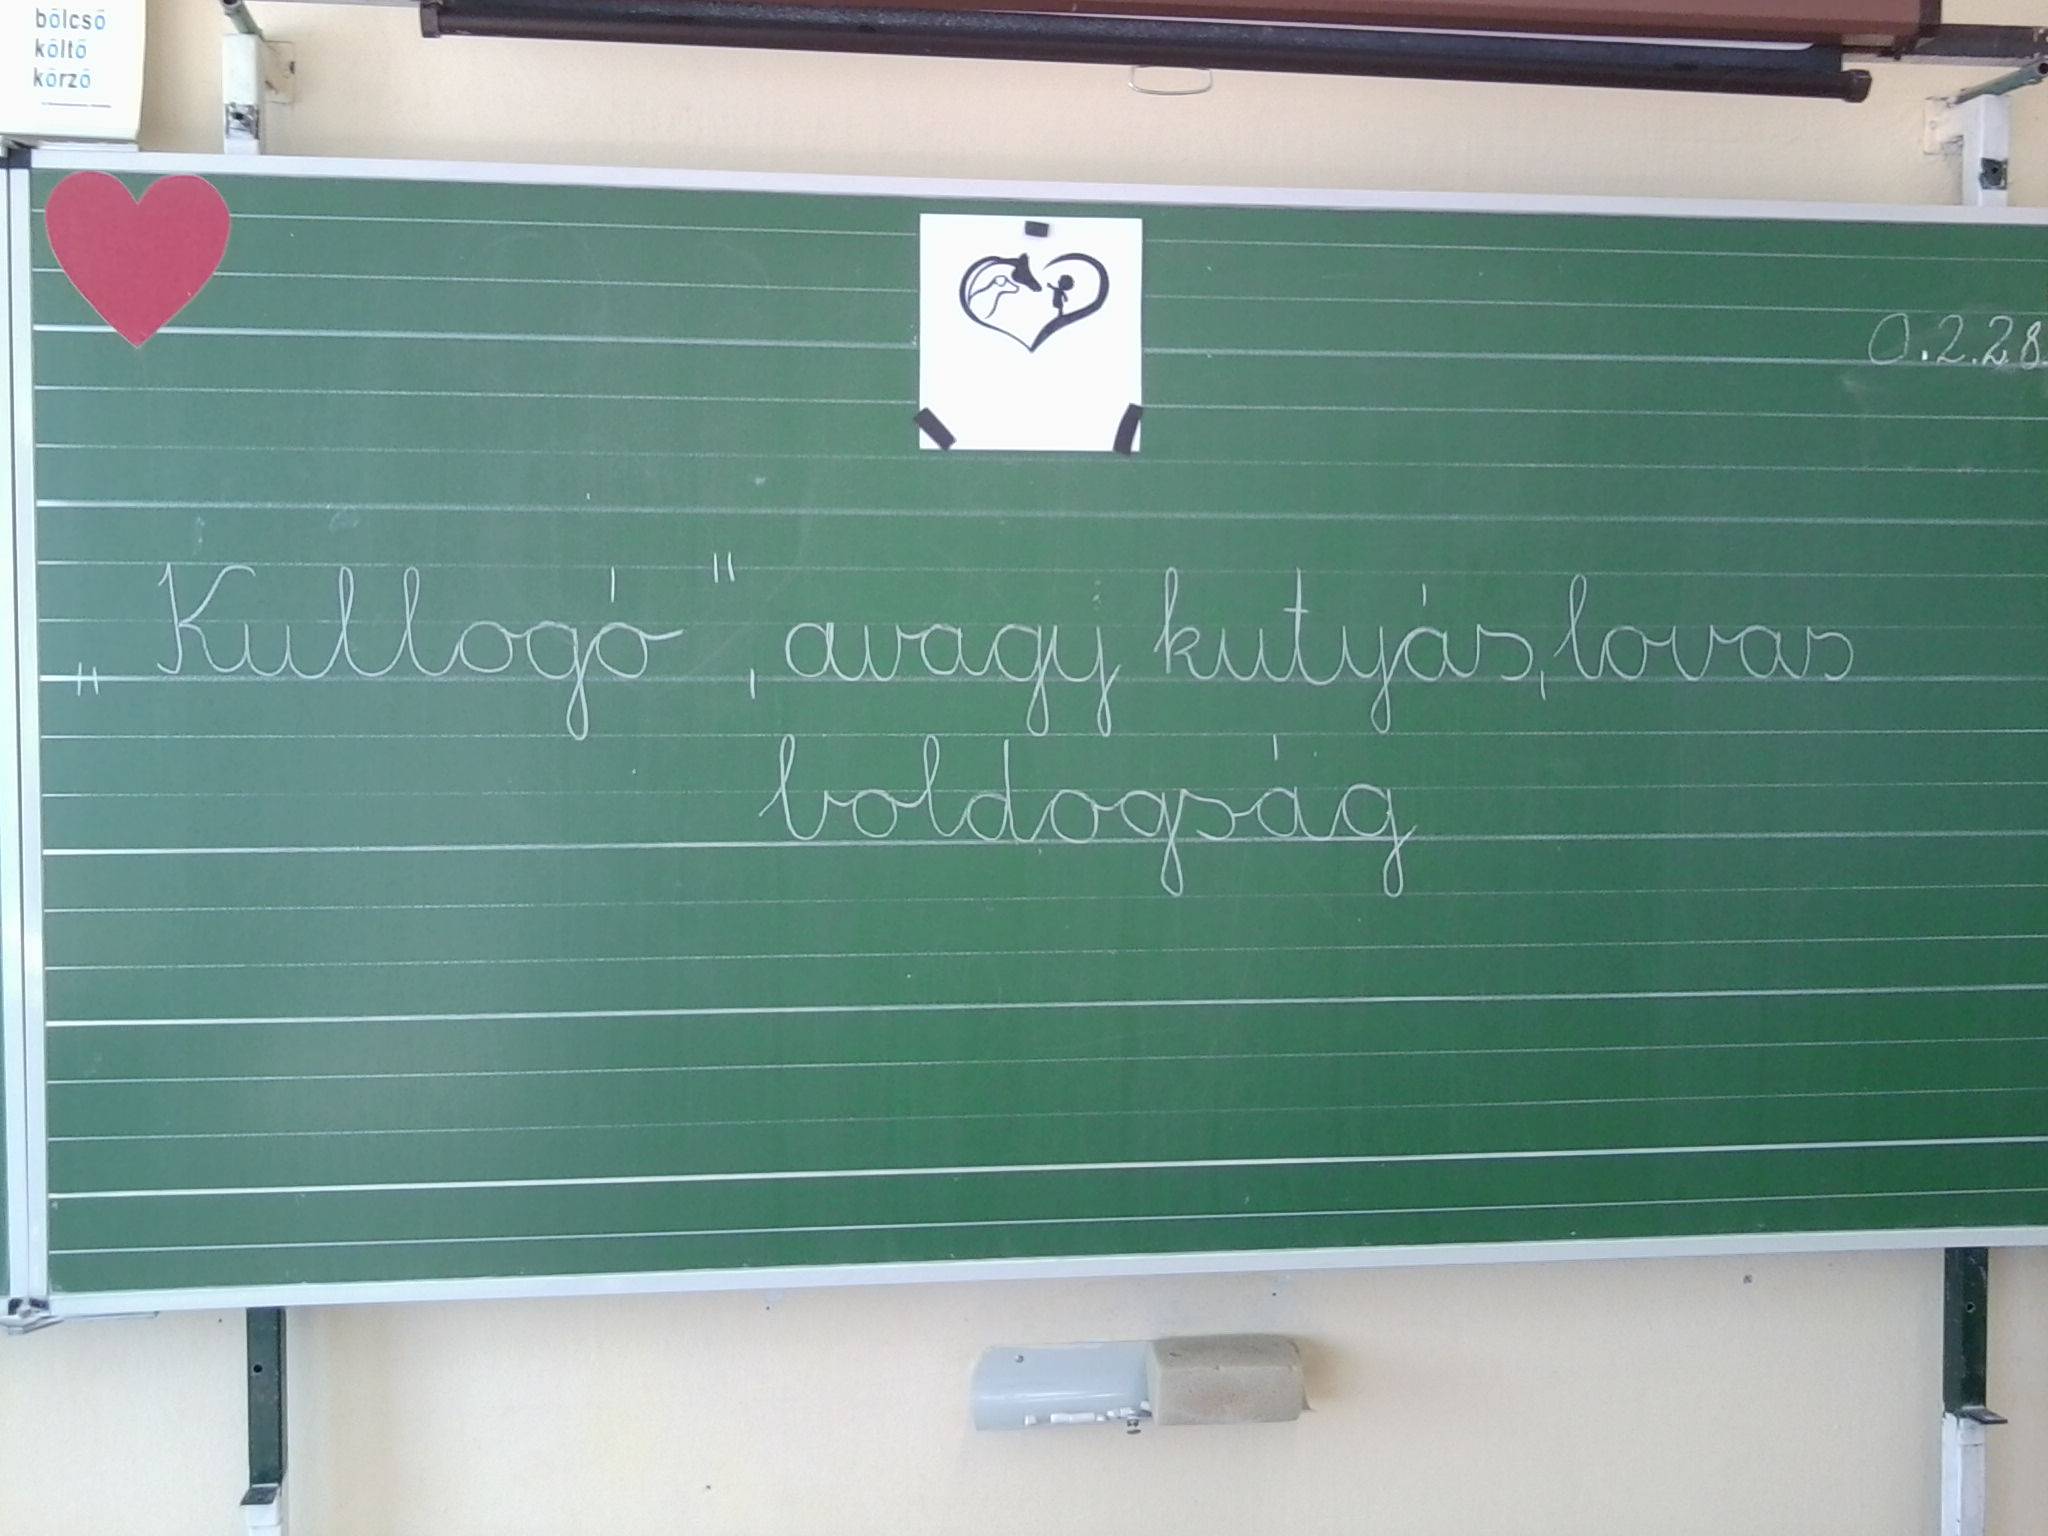 bölcső
költő
körző
0.2.28.
„Kullogó", avagy kutyás, lovas
boldogság